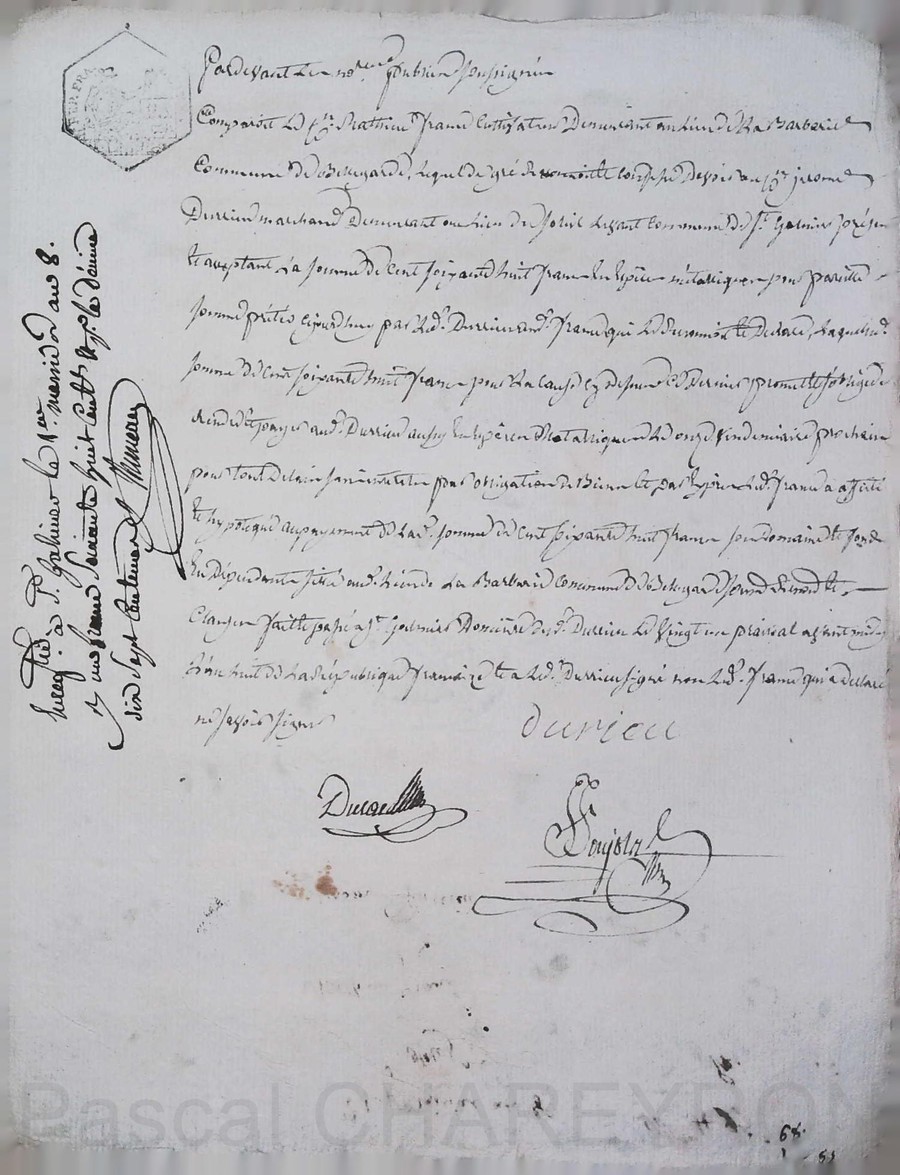 Pardevant les no.res publics soussignés
Comparoit le c.en Mathieu france cultivateur Demeurant au lieu de La Barbarie
Commune de Bellegarde, lequel de gré confesse devoir au c.en jerome
Durrieu marchand Demeurant au lieu du soleil levant commune de S.t Galmier présent
et acceptant La somme de Cent soixante huit francs En Espèces métalliques pour pareille
somme prêtée cejourd'huy par led. Durrieu aud. france qui Le reconnoit et Declare, Laquelle d.
somme de cent soixante huit francs pour La cause cy dessus Le Dernier promet et s'oblige de
rendre et payer aud. Durrieu aussy En Espèces Metalliques Le onze vindemiaire prochain
pour tout Delais par obligation de Biens et par Exprès led. france a affecté
et hypotequé au payement de Lad. somme de Cent soixante huit francs son domaine et fonds
En Dépendants situé aud. Lieu de La Barbarie commune de Bellegarde
Clauses fait et passé à S.t Galmier Domicile dud. Durrieu Le vingt un prairial avant midy
L'an huit de La République francaize et a Led. Durrieu signé non Led. france qui a declaré
ne savoir signer
durieu
Enregistré à S.t Galmier le 1.er messidor an 8.
R un franc soixante huit cent.es le décime
dix sept centimes
68.